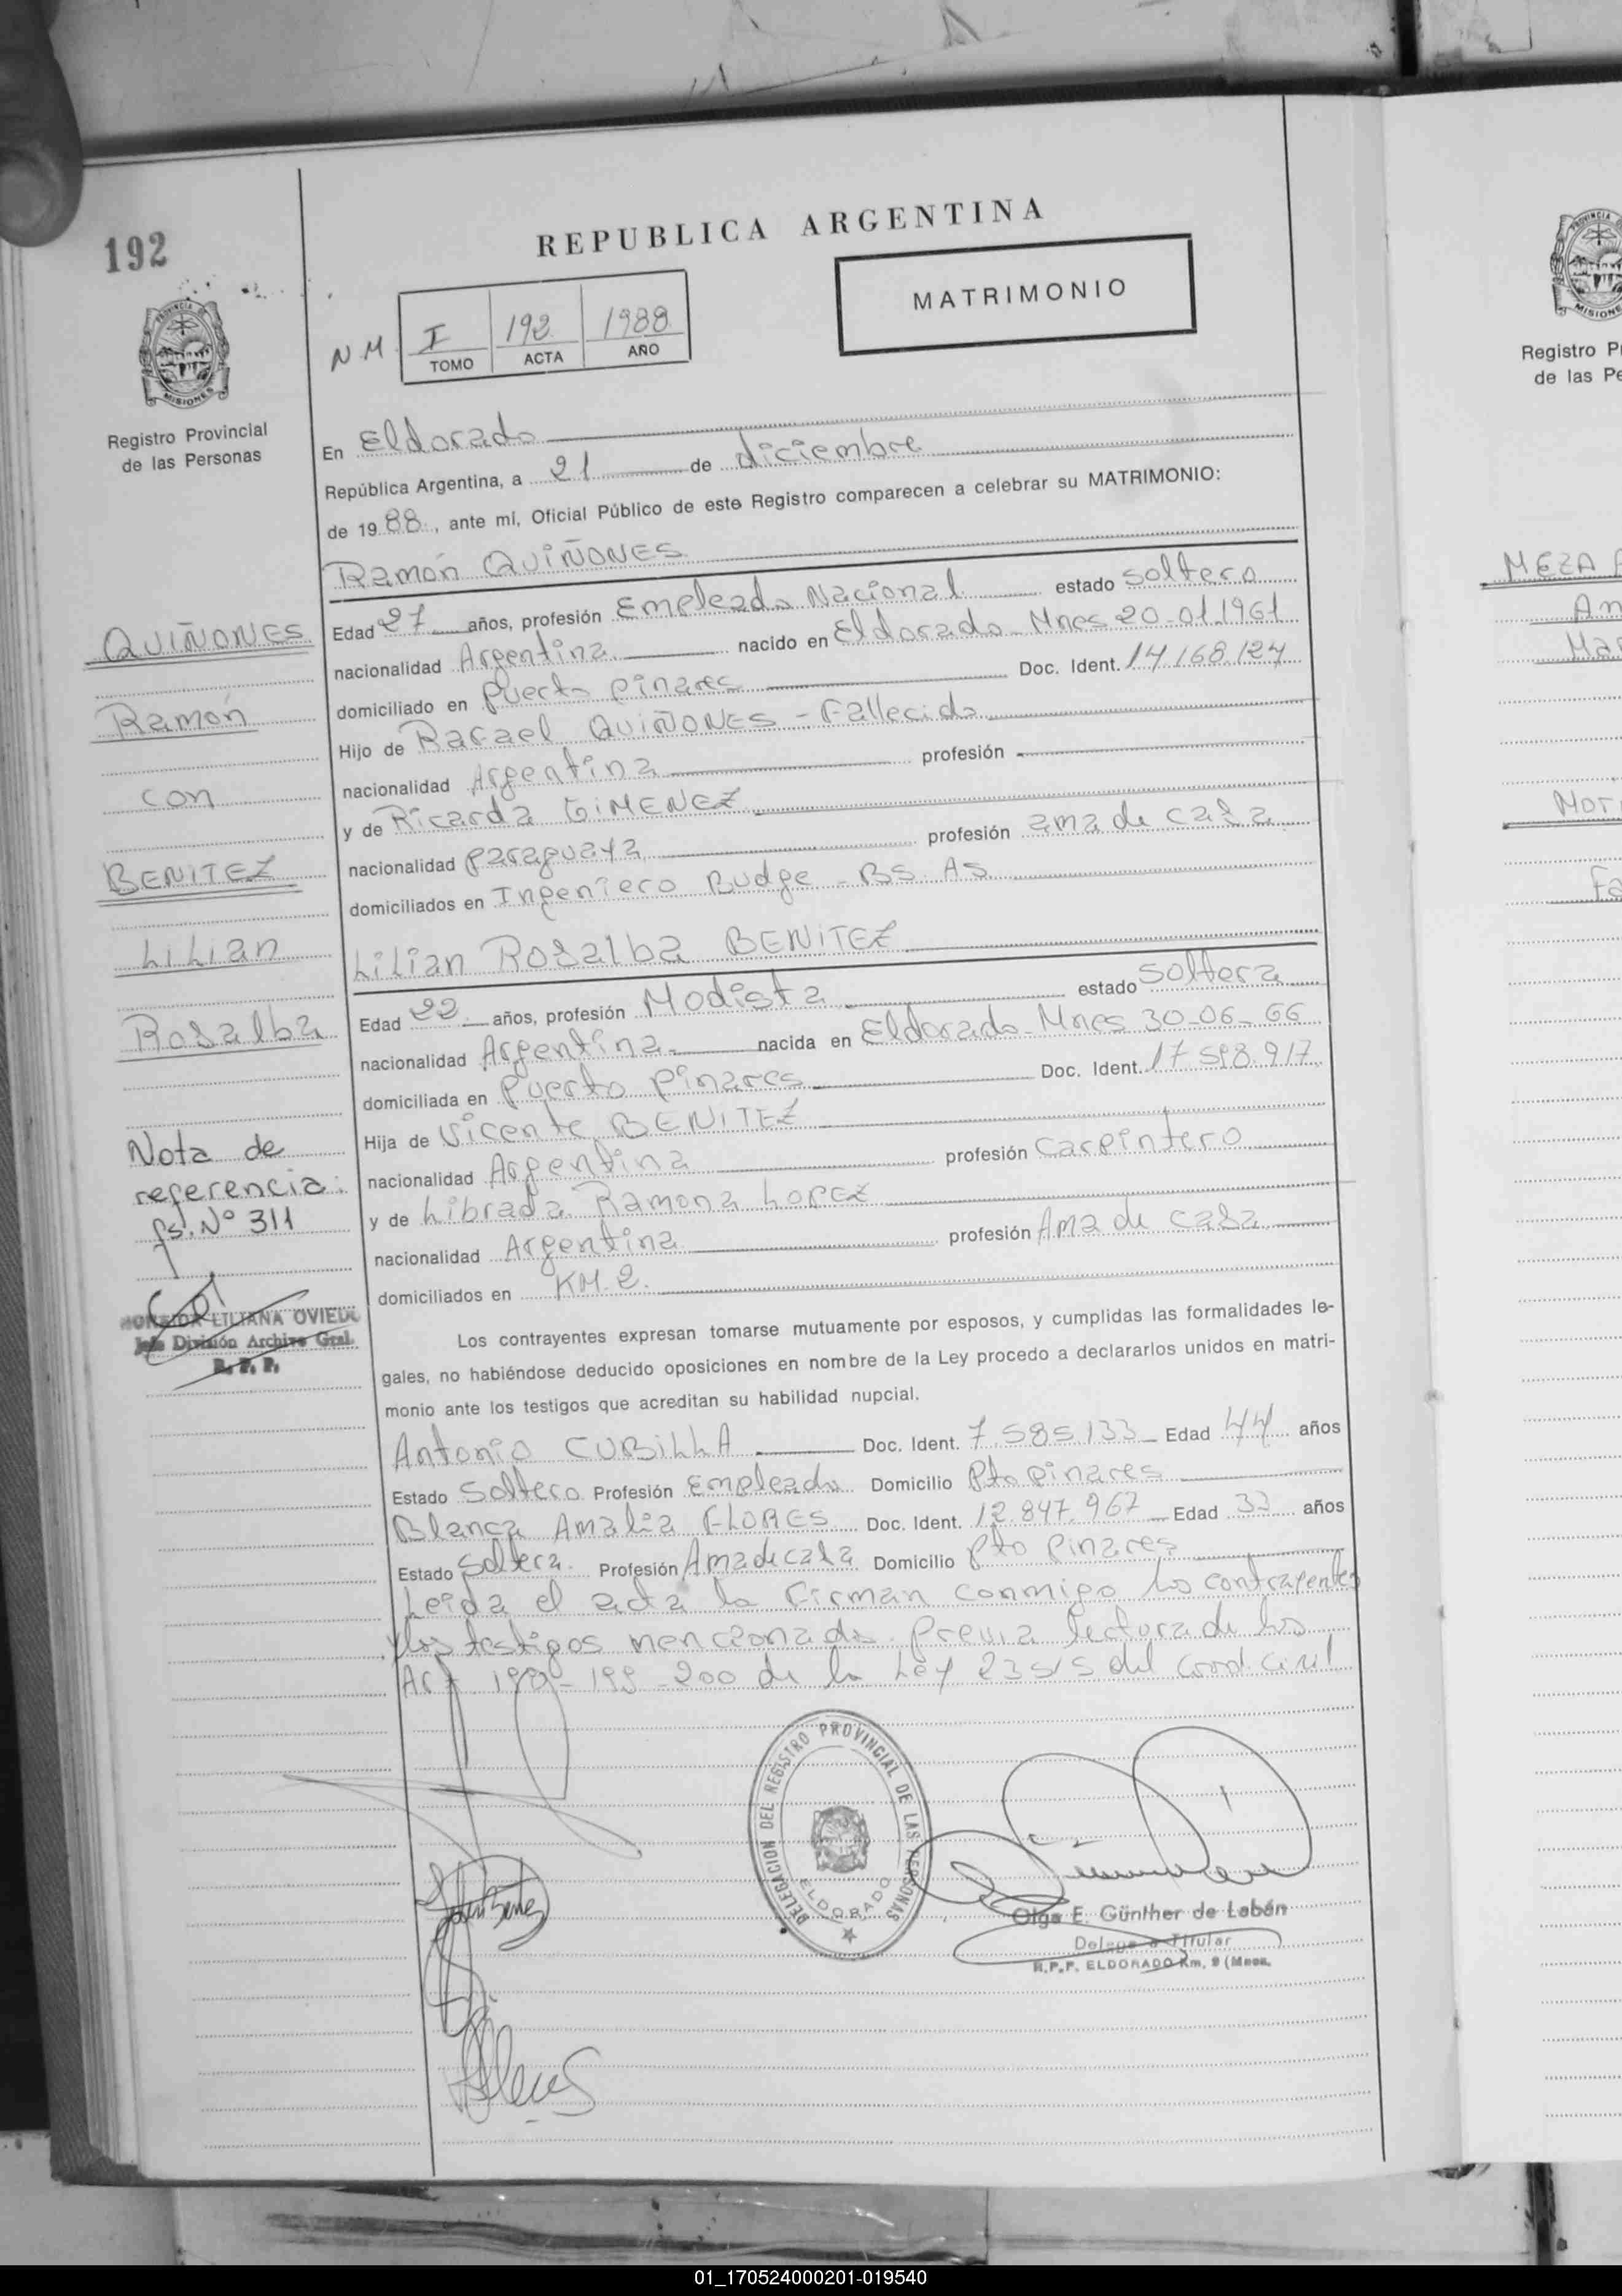 192
REPUBLICA ARGENTINA
MATRIMONIO
N M
I 192 1988
TOMO ACTA AÑO
PROVINCIA DE
MISIONES
Registro Provincial
de las Personas
En Eldorado
República Argentina, a 21 de diciembre
de 1988, ante mí, Oficial Público de este Registro comparecen a celebrar su MATRIMONIO:
Ramón QUIÑONES
Edad 27 años, profesión Empleado Nacional estado soltero
nacionalidad Argentina nacido en Eldorado Mnes 20-01-1961
domiciliado en Puerto Pinares Doc. Ident. 14.168.124
Hijo de Rafael QUIÑONES - Fallecido
nacionalidad Argentina profesión
y de Ricarda GIMENEZ
nacionalidad paraguaya profesión ama de casa
domiciliados en Ingeniero Budge - BS. AS.
Lilian Rosalba BENITEZ
Edad 22 años, profesión Modista estado soltera
nacionalidad Argentina nacida en Eldorado Mnes 30-06-66
domiciliada en Puerto Pinares Doc. Ident. 17.598.917
Hija de Vicente BENITEZ
nacionalidad Argentina profesión Carpintero
y de Librada Ramona LOPEZ
nacionalidad Argentina profesión Ama de casa
domiciliados en KM. 2.
Los contrayentes expresan tomarse mutuamente por esposos, y cumplidas las formalidades le-
gales, no habiéndose deducido oposiciones en nombre de la Ley procedo a declararlos unidos en matri-
monio ante los testigos que acreditan su habilidad nupcial.
Antonio CUBILLA Doc. Ident. 7.585.133 Edad 44 años
Estado Soltero Profesión Empleado Domicilio Pto Pinares
Blanca Amalia FLORES Doc. Ident. 12.847.967 Edad 33 años
Estado Soltera Profesión Ama de casa Domicilio Pto Pinares
Leida el acta la Firman conmigo los contrayentes
y los testigos mencionados. Previa lectura de los
Art 198-199-200 de la Ley 23515 del Cod. Civil
QUIÑONES
Ramón
con
BENITEZ
LILIAN
Rosalba
Nota de
referencia:
fs. Nº 311
LILIANA OVIEDO
Jefe División Archivo Gral.
R. P. P.
DELEGACION DEL REGISTRO PROVINCIAL DE LAS PERSONAS
ELDORADO
Olga E. Günther de Labán
Delegada Titular
R.P.P. ELDORADO Km. 9 (Mnes.
PROVINCIA
MISIONES
Registro P
de las Pe
MEZA
An
Mar
01_170524000201-019540